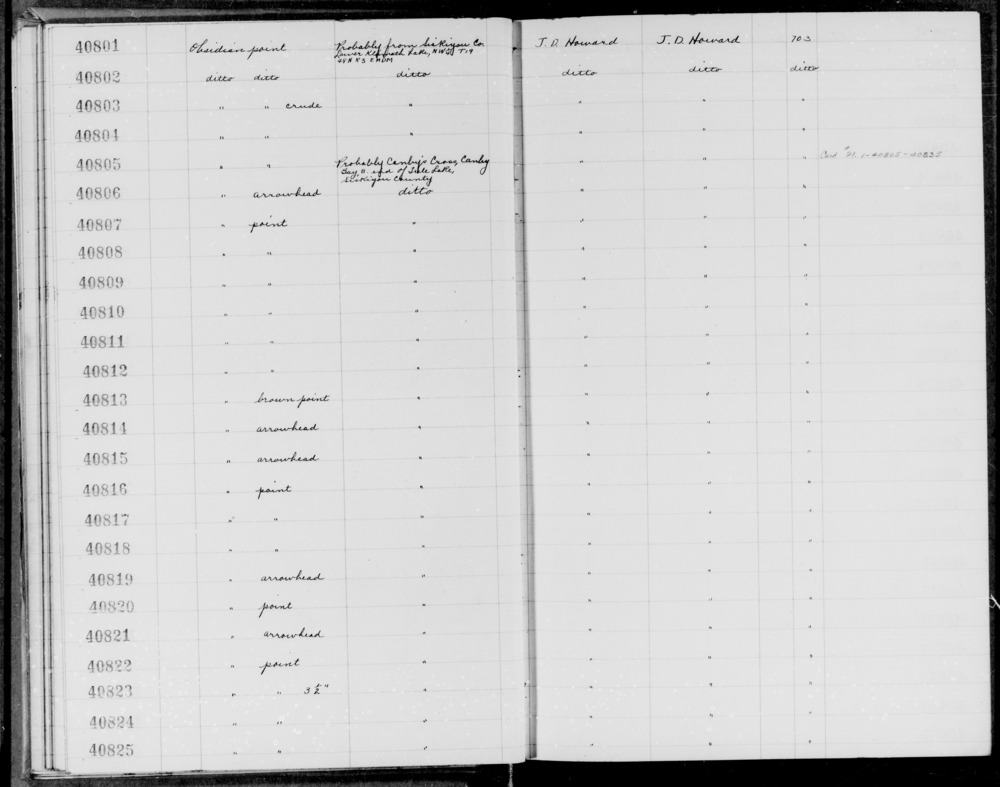 40801 Obsidian point Probably from Siskiyou Co. J. D. Howard J. D. Howard 703
Lower Klamath Lake, NW T19
48N R3 E MDM
40802 ditto ditto ditto ditto ditto ditto
40803 " " crude " " " "
40804 " " " " " "
40805 " " Probably Canby's Cross, Canby " " " Cat # 21.1-40805-40835
Bay, s. end of Tule Lake,
Siskiyou County
40806 " arrowhead ditto " " "
40807 " point " " " "
40808 " " " " " "
40809 " " " " " "
40810 " " " " " "
40811 " " " " " "
40812 " " " " " "
40813 " brown point " " " "
40814 " arrowhead " " " "
40815 " arrowhead " " " "
40816 " point " " " "
40817 " " " " " "
40818 " " " " " "
40819 " arrowhead " " " "
40820 " point " " " "
40821 " arrowhead " " " "
40822 " point " " " "
40823 " " 3 1/2" " " " "
40824 " " " " " "
40825 " " " " " "